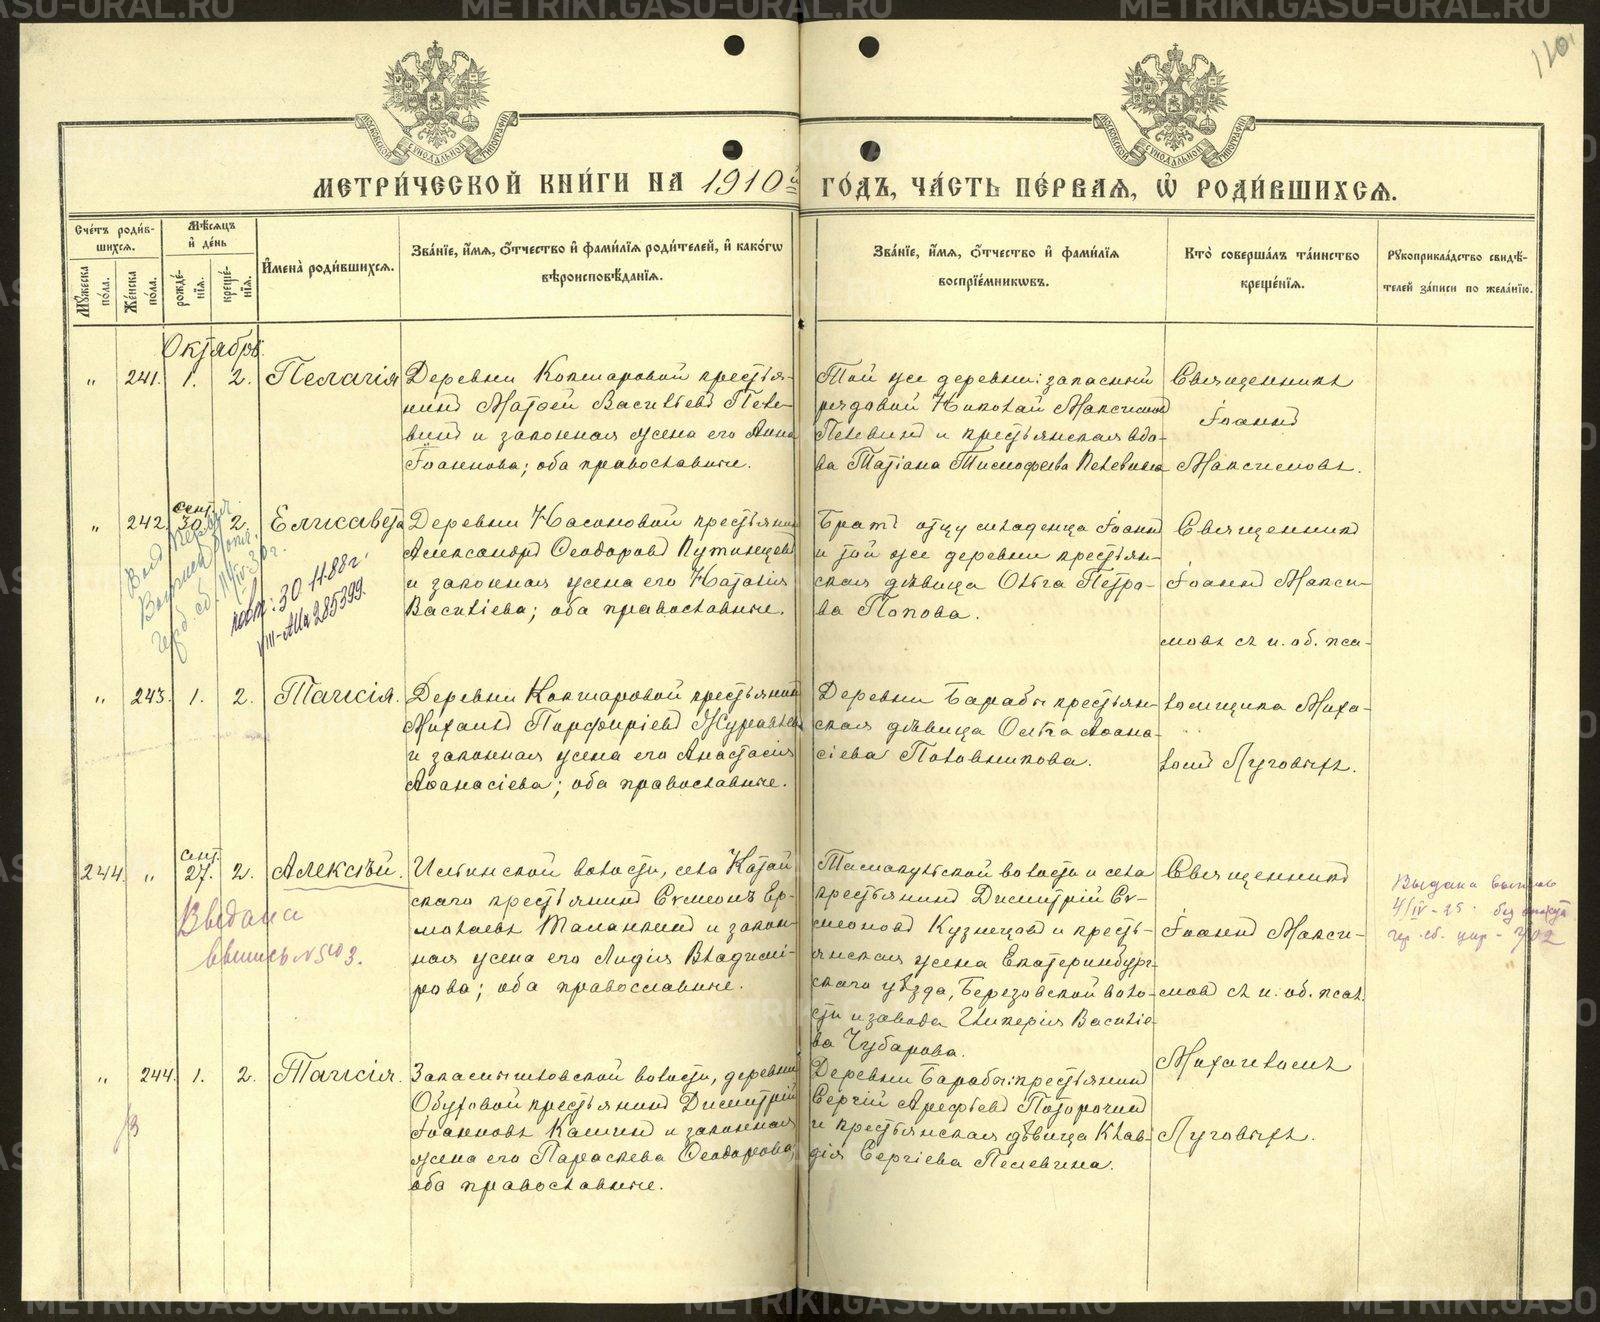 110
МЕТРИ́ЧЕСКОЙ КНИ́ГИ НА 1910й ГО́ДЪ, ЧА́СТЬ ПЕ́РВАЯ, Ѿ РОДИ́ВШИХСѦ.
Сче́тъ роди́в-
шихся.
Мꙋ́жеска по́ла.
Же́нска по́ла.
Мѣ́сяцъ и҆ де́нь
рожде́-
нїя.
креще́-
нїя.
И҆мена̀ роди́вшихся.
Зва́нїе, и҆́мя, о҆́тчество и҆ фами́лїя роди́телей, и҆ како́гѡ
вѣроисповѣ́данїя.
Зва́нїе, и҆́мя, о҆́тчество и҆ фами́лїя
воспрїе́мникѡвъ.
Кто̀ соверша́лъ та́инство
креще́нїя.
Рꙋкоприкла́дство свидѣ́-
телей за́писи по жела́нїю.
Октябрь.
" 241. 1. 2. Пелагія
Деревни Кокшаровой крестья-
нинъ Матѳей Васильевъ Пеле-
винъ и законная жена его Анна
Іоаннова; оба православные.
Той же деревни: запасный
рядовой Николай Максимовъ
Пелевинъ и крестьянская вдо-
ва Татіана Тимофеева Пелевина
Священникъ
Іоаннъ
Максимовъ.
" 242. Сент. 30. 2. Елисавета
Деревни Насоновой крестьянинъ
Александръ Ѳеодоровъ Путинцевъ
и законная жена его Наталія
Васильева; оба православные.
Братъ отцу младенца Іоаннъ
и той же деревни крестьян-
ская дѣвица Ольга Петро-
ва Попова.
Священникъ
Іоаннъ Макси-
мовъ съ и. об. пса-
30.11.88 г.
VIII-АИ № 285399.
" 243. 1. 2. Таисія.
Деревни Кокшаровой крестьянинъ
Михаилъ Парфиріевъ Журавлевъ
и законная жена его Анастасія
Аѳанасіева; оба православные.
Деревни Барабы крестьян-
ская дѣвица Ольга Аѳана-
сіева Половникова.
ломщика Миха-
иломъ Луговыхъ.
244. " сент. 27. 2. Алексѣй.
Ильинской волости, села Катай
скаго крестьянинъ Симеонъ Ер-
молаевъ Таланкинъ и закон-
ная жена его Лидія Владими-
рова; оба православные.
Тамакульской волости и села
крестьянинъ Димитрій Си-
меоновъ Кузнецовъ и кресть-
янская жена Екатеринбург-
скаго уѣзда, Березовской воло-
сти и завода Гликерія Василіе-
ва Чубарова.
Священникъ
Іоаннъ Макси-
мовъ съ и. об. псал.
Михаиломъ
Луговыхъ.
Выдана
выпись № 5403.
Выдана выпись
4/IV-25.
" 244. 1. 2. Таисія.
деревни
Обуховой крестьянинъ Димитрій
Іоанновъ Калинъ и законная
жена его Параскева Ѳеодорова;
оба православные.
Деревни Барабы: крестьянинъ
Сергій Арефьевъ Поторочинъ
и крестьянская дѣвица Клав-
дія Сергіева Пелевина.
METRIKI.GASU-URAL.RU